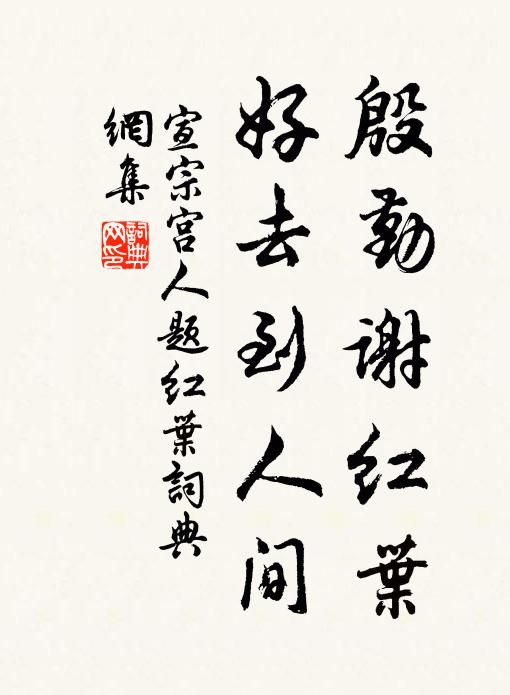 殷勤谢红葉
好去到人间
宣宗宫人题红葉詞典
網集
詞典
网印